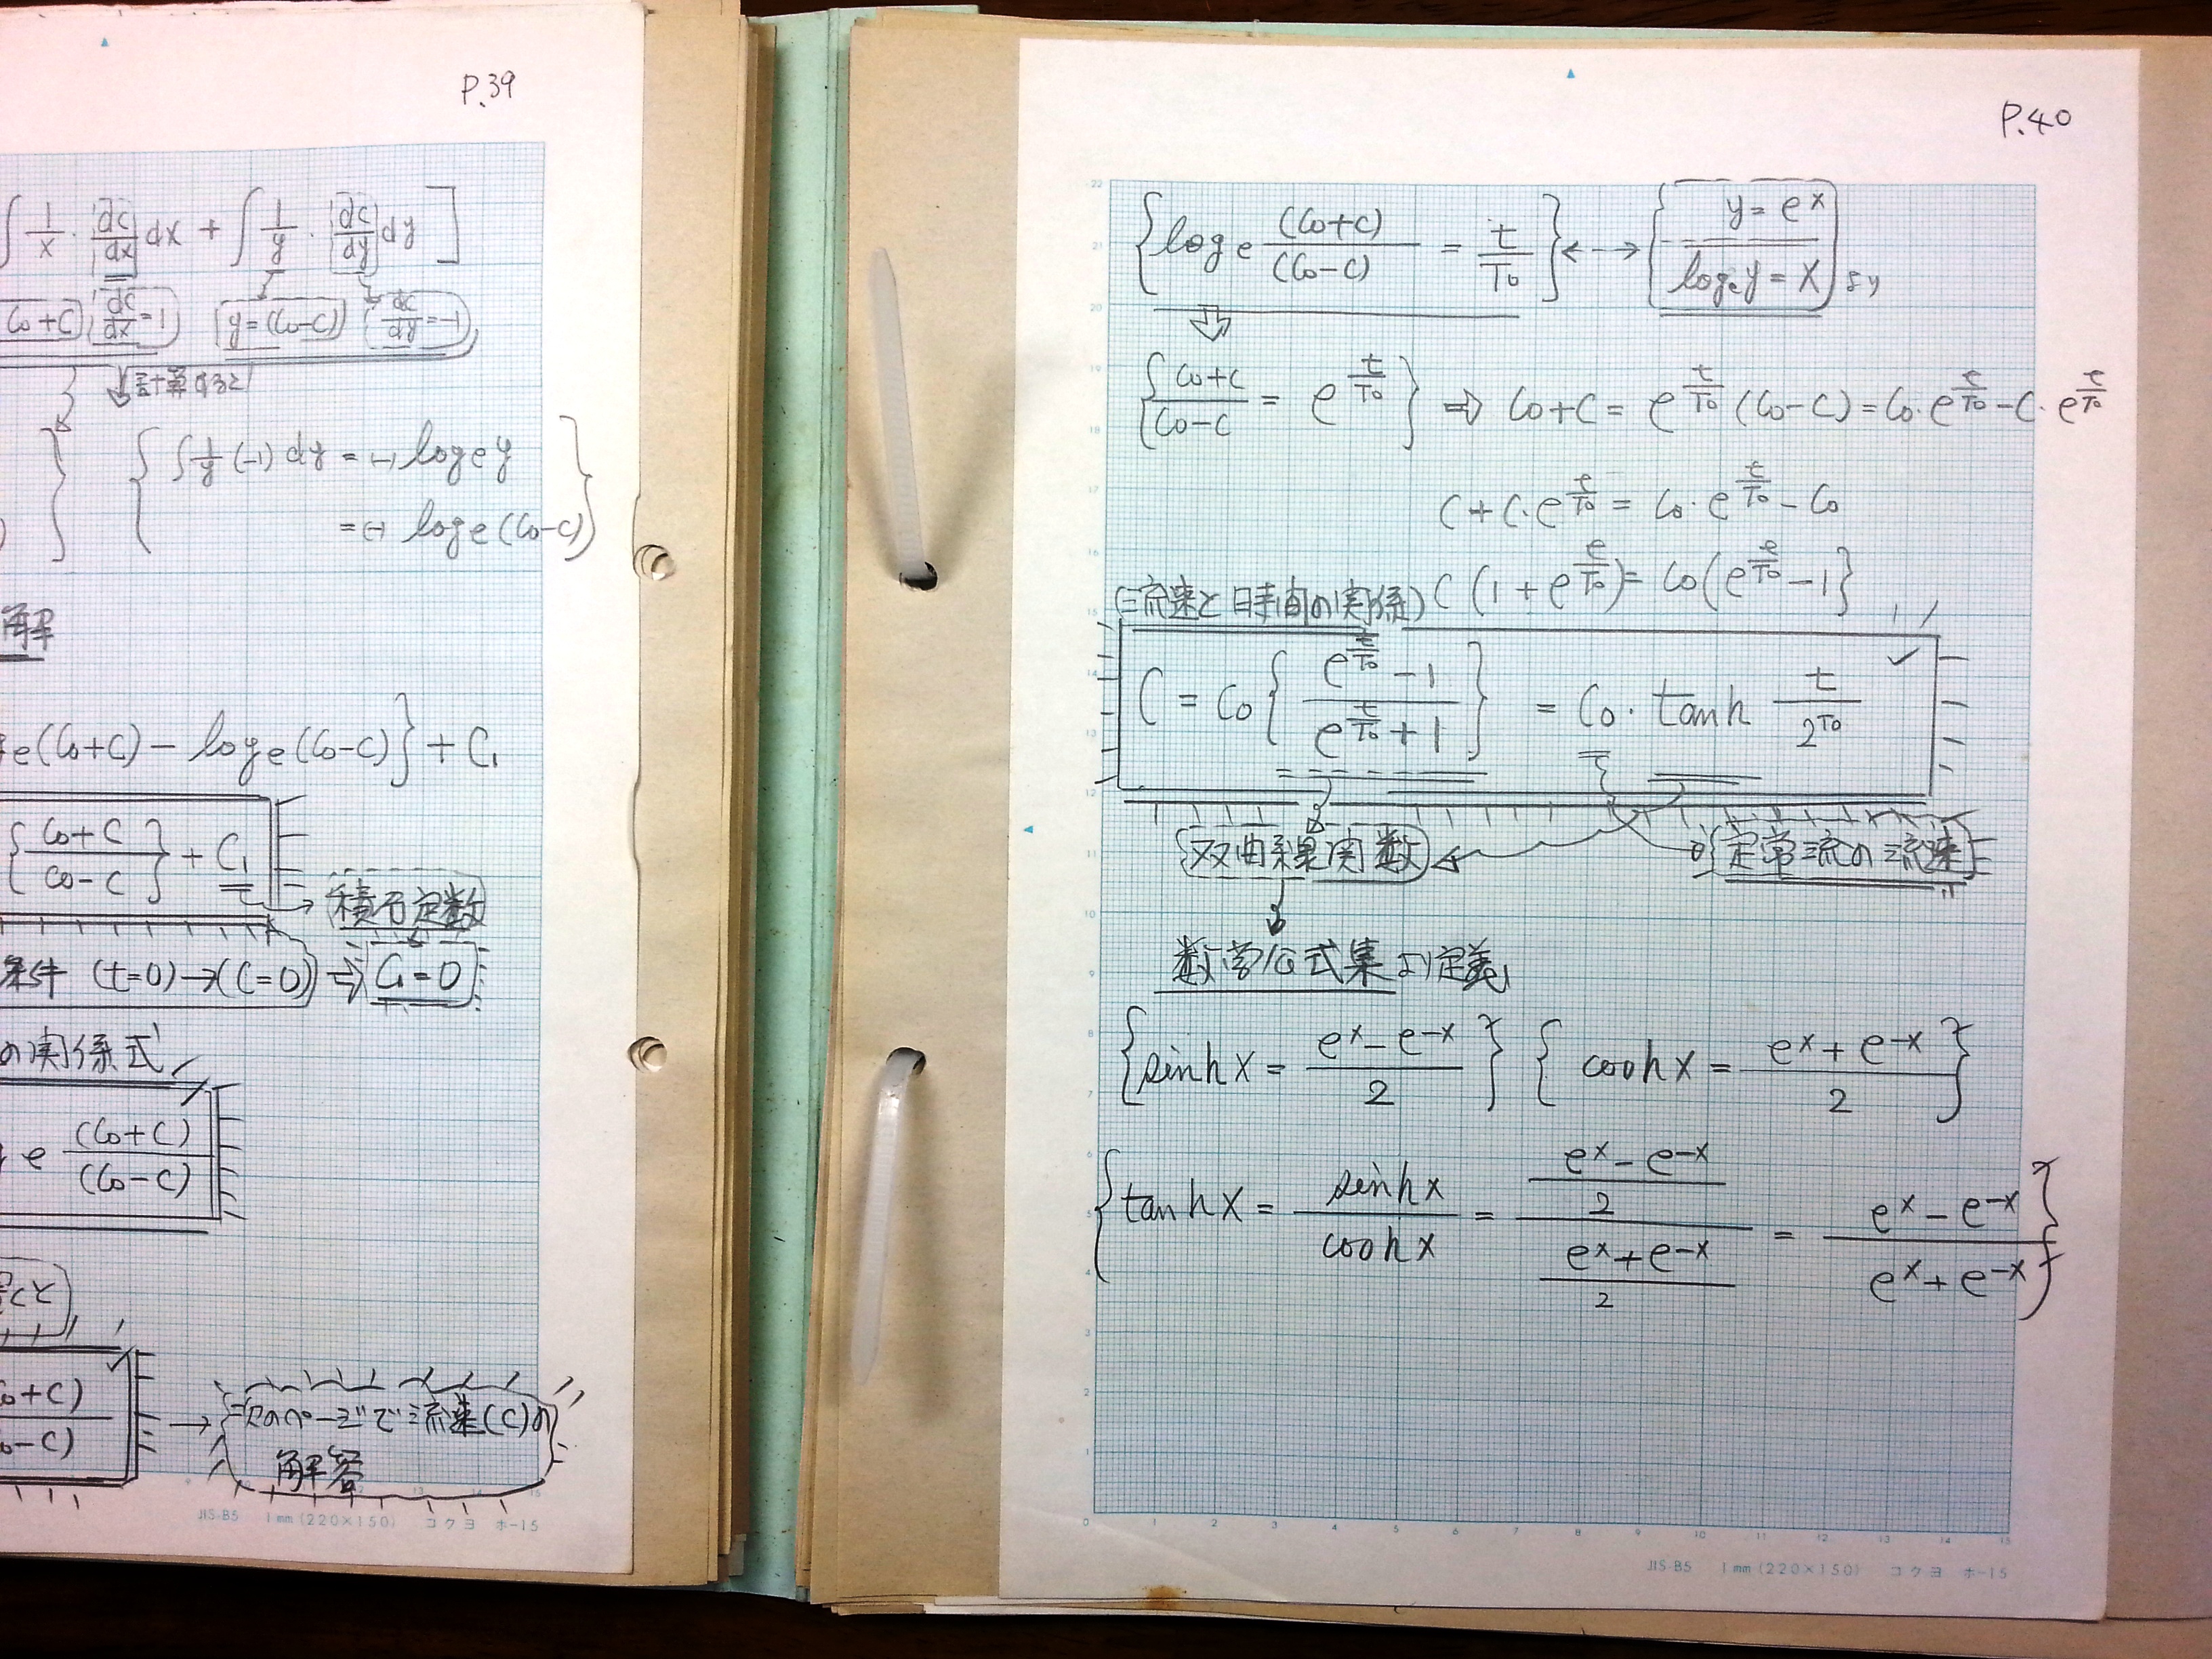 P.39
∫ 1/x · dc/dx dx + ∫ 1/y · dc/dy dy ]
C₀+C) dc/dx = 1 y = (C₀-C) dc/dy = -1
計算すると
{ ∫ 1/y (-1) dy = (-) log e y
= (-) log e (C₀-C) }
解
e (C₀+C) - log e (C₀-C) } + C₁
{ C₀+C / C₀-C } + C₁
積分定数
条件 (t=0)→(C=0) ⇒ C₁=0
の関係式
e (C₀+C) / (C₀-C)
くと
C₀+C) / C₀-C) → 次のページで流速(C)の
解答
JIS-B5 1mm (220×150) コクヨ ホ-15
P.40
{ log e (C₀+C) / (C₀-C) = t/T₀ } ←→ { y = e^x / log e y = x } より
{ C₀+C / C₀-C = e^(t/T₀) } ⇒ C₀+C = e^(t/T₀) (C₀-C) = C₀·e^(t/T₀) - C·e^(t/T₀)
C + C·e^(t/T₀) = C₀·e^(t/T₀) - C₀
(流速と時間の関係) C (1 + e^(t/T₀)) = C₀ {e^(t/T₀) - 1}
C = C₀ { e^(t/T₀) - 1 / e^(t/T₀) + 1 } = C₀ · tanh t / 2T₀
双曲線関数 定常流の流速
数学公式集より定義
{ sinh x = e^x - e^-x / 2 } { cosh x = e^x + e^-x / 2 }
{ tanh x = sinh x / cosh x = (e^x - e^-x / 2) / (e^x + e^-x / 2) = e^x - e^-x / e^x + e^-x }
JIS-B5 1mm (220×150) コクヨ ホ-15